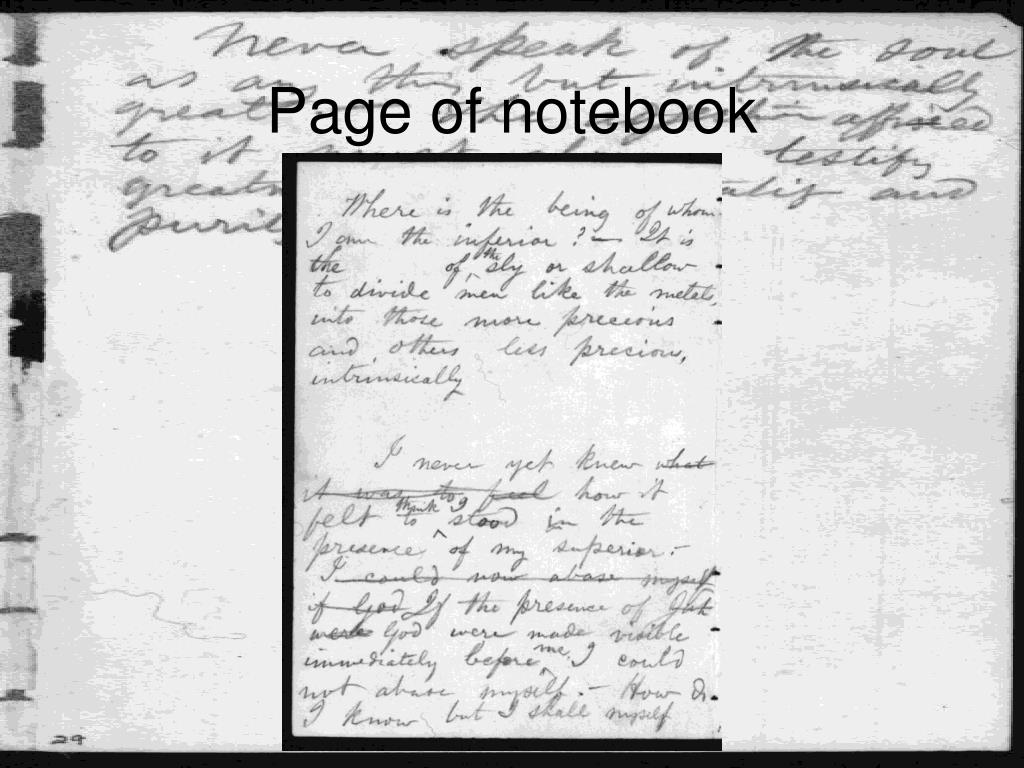 Never speak of the soul
as any thing but intrinsically
great
to it testify
and
Page of notebook
Where is the being of whom
I am the inferior? — It is
the of the sly or shallow
to divide men like the metals,
into those more precious
and others less precious,
intrinsically
I never yet knew what
it was to feel how it
felt to think I stood in the
presence of my superior.—
I could now abase myself
if God If the presence of God
were God were made visible
immediately before me I could
not abase myself.— How do
I know but I shall myself
29